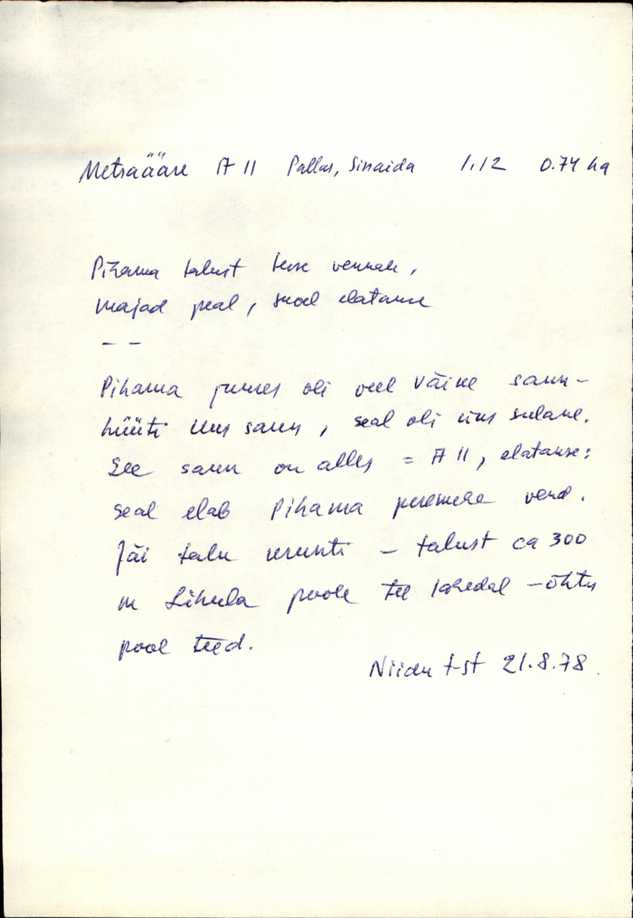 Metsaääre A 11 Pallas, Sinaida 1,12 0.74 ha
Pihama talust teise vennale,
majad peal, seal elatakse
– –
Pihama juures oli veel väike saun –
hüüti Uus saun, seal oli üks sulane.
See saun on alles = A 11, elatakse:
seal elab Pihama peremehe vend.
Jäi talu krunti – talust ca 300
m Lihula poole tee lähedal – õhtu
pool teed.
Niidu t-st 21.8.78